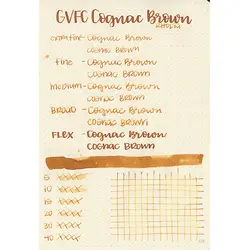 GVFC Cognac Brown
extra fine - Cognac Brown
COGNAC BROWN
fine - Cognac Brown
COGNAC BROWN
medium - Cognac Brown
COGNAC BROWN
BROAD - Cognac Brown
COGNAC BROWN
FLEX - Cognac Brown
COGNAC BROWN
5
10
15
20
30
40